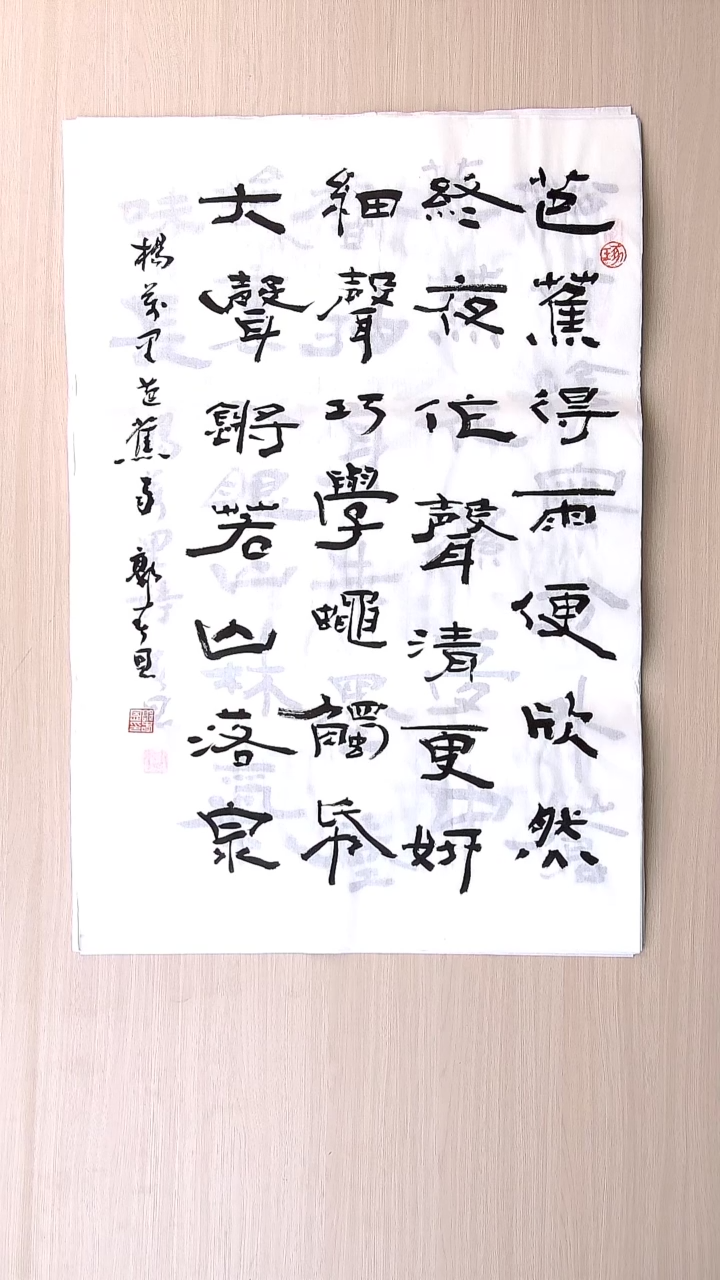 芭蕉得雨便欣然
終夜作聲清更妍
細聲巧學蠅觸紙
大聲鏘若山落泉
楊萬里芭蕉雨